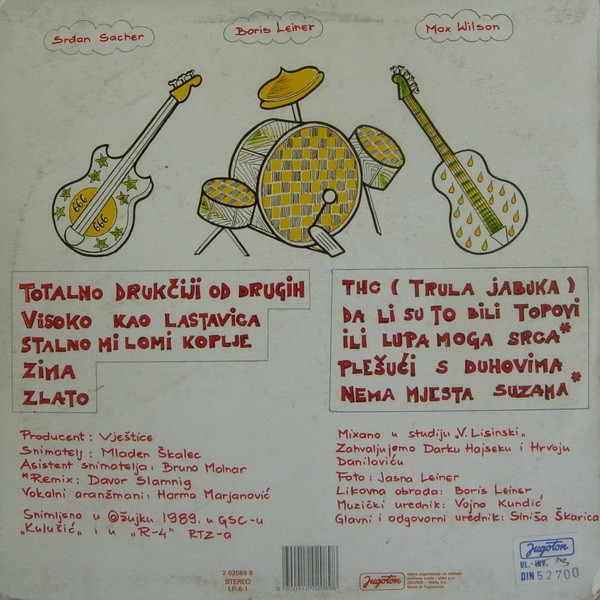 Srđan Sacher
Boris Leiner
Max Wilson
666
666
TOTALNO DRUKČIJI OD DRUGIH
VISOKO KAO LASTAVICA
STALNO MI LOMI KOPLJE
ZIMA
ZLATO
THC ( TRULA JABUKA )
DA LI SU TO BILI TOPOVI
ILI LUPA MOGA SRCA*
PLEŠUĆI S DUHOVIMA
NEMA MJESTA SUZAMA*
Producent: Vještice
Snimatelj: Mladen Škalec
Asistent snimatelja: Bruno Molnar
*Remix: Davor Slamnig
Vokalni aranžmani: Harma Marjanović
Snimljeno u ožujku 1989. u GSC-u
„Kulušić„ i u „R-4„ RTZ-a
Mixano u studiju „V. Lisinski„
Zahvaljujemo Darku Hajseku i Hrvoju
Daniloviću
Foto: Jasna Leiner
Likovna obrada: Boris Leiner
Muzički urednik: Vojno Kundić
Glavni i odgovorni urednik: Siniša Škarica
2 02089 8
STEREO
LP-6-1
Jugoton
Made in Yugoslavia
Jugoton
UL.-INV.
DIN 52700